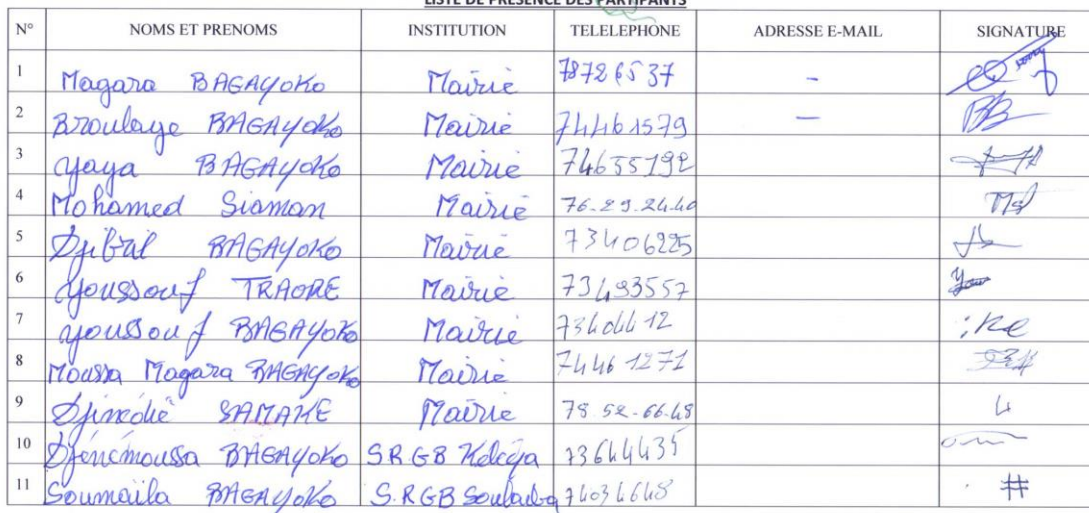 LISTE DE PRESENCE DES PARTIPANTS
N° NOMS ET PRENOMS INSTITUTION TELELEPHONE ADRESSE E-MAIL SIGNATURE
1 Magara BAGAYOKO Mairie 78726537 -
2 Broulaye BAGAYOKO Mairie 74461579 -
3 Yaya BAGAYOKO Mairie 74655192
4 Mohamed Siaman Mairie 76-29-24-40
5 Djibril BAGAYOKO Mairie 73406225
6 Youssouf TRAORE Mairie 73493557
7 Youssouf BAGAYOKO Mairie
8 Moussa Magara BAGAYOKO Mairie 74461271
9 SAMAKE Mairie 78 52-66-48
10 BAGAYOKO S.R.GB Keleya 73644435
11 Soumaïla BAGAYOKO S.R.GB 74034648